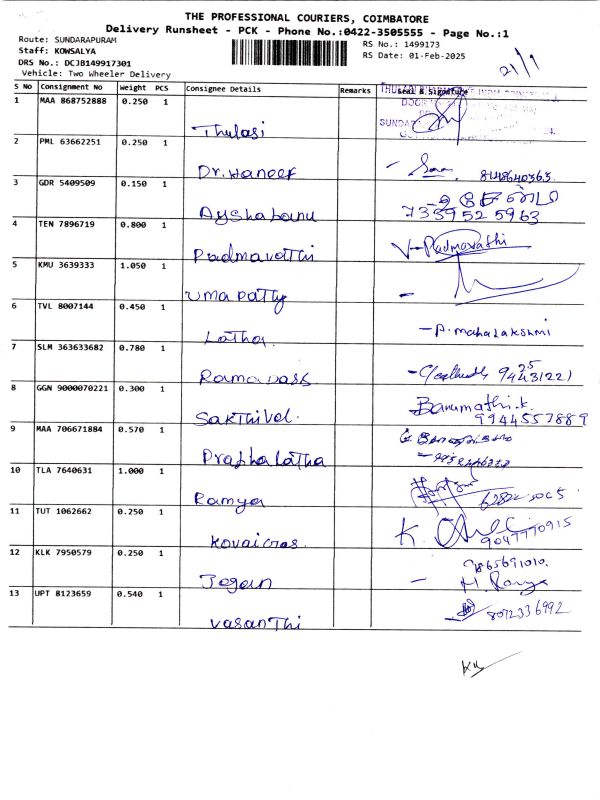 THE PROFESSIONAL COURIERS, COIMBATORE
Delivery Runsheet - PCK - Phone No.:0422-3505555 - Page No.:1
Route: SUNDARAPURAM
RS No.: 1499173
Staff: KOWSALYA
RS Date: 01-Feb-2025
DRS No.: DCJB149917301
21/1
Vehicle: Two Wheeler Delivery
S No Consignment No Weight PCS Consignee Details Remarks Seal & Signature
1 MAA 868752888 0.250 1
Thulasi
2 PML 63662251 0.250 1
Dr. Haneef 8148640363
3 GDR 5409509 0.150 1
Ayshabanu 7339525963
4 TEN 7896719 0.800 1
Padmavatthi V. Padmavathi
5 KMU 3639333 1.050 1
Uma Patty
6 TVL 8007144 0.450 1
Latha. - P. mahalakshmi
7 SLM 363633682 0.780 1
Ramadass
8 GGN 9000070221 0.300 1 Banumathi.k.
Sakthivel. 9944557889
9 MAA 706671884 0.570 1
Prabhalatha
10 TLA 7640631 1.000 1
Ramya
11 TUT 1062662 0.250 1 K.
Kovaicras. 9047770915
12 KLK 7950579 0.250 1 9865691010.
Jegan - M. Ramya
13 UPT 8123659 0.540 1 8072336992
Vasanthi